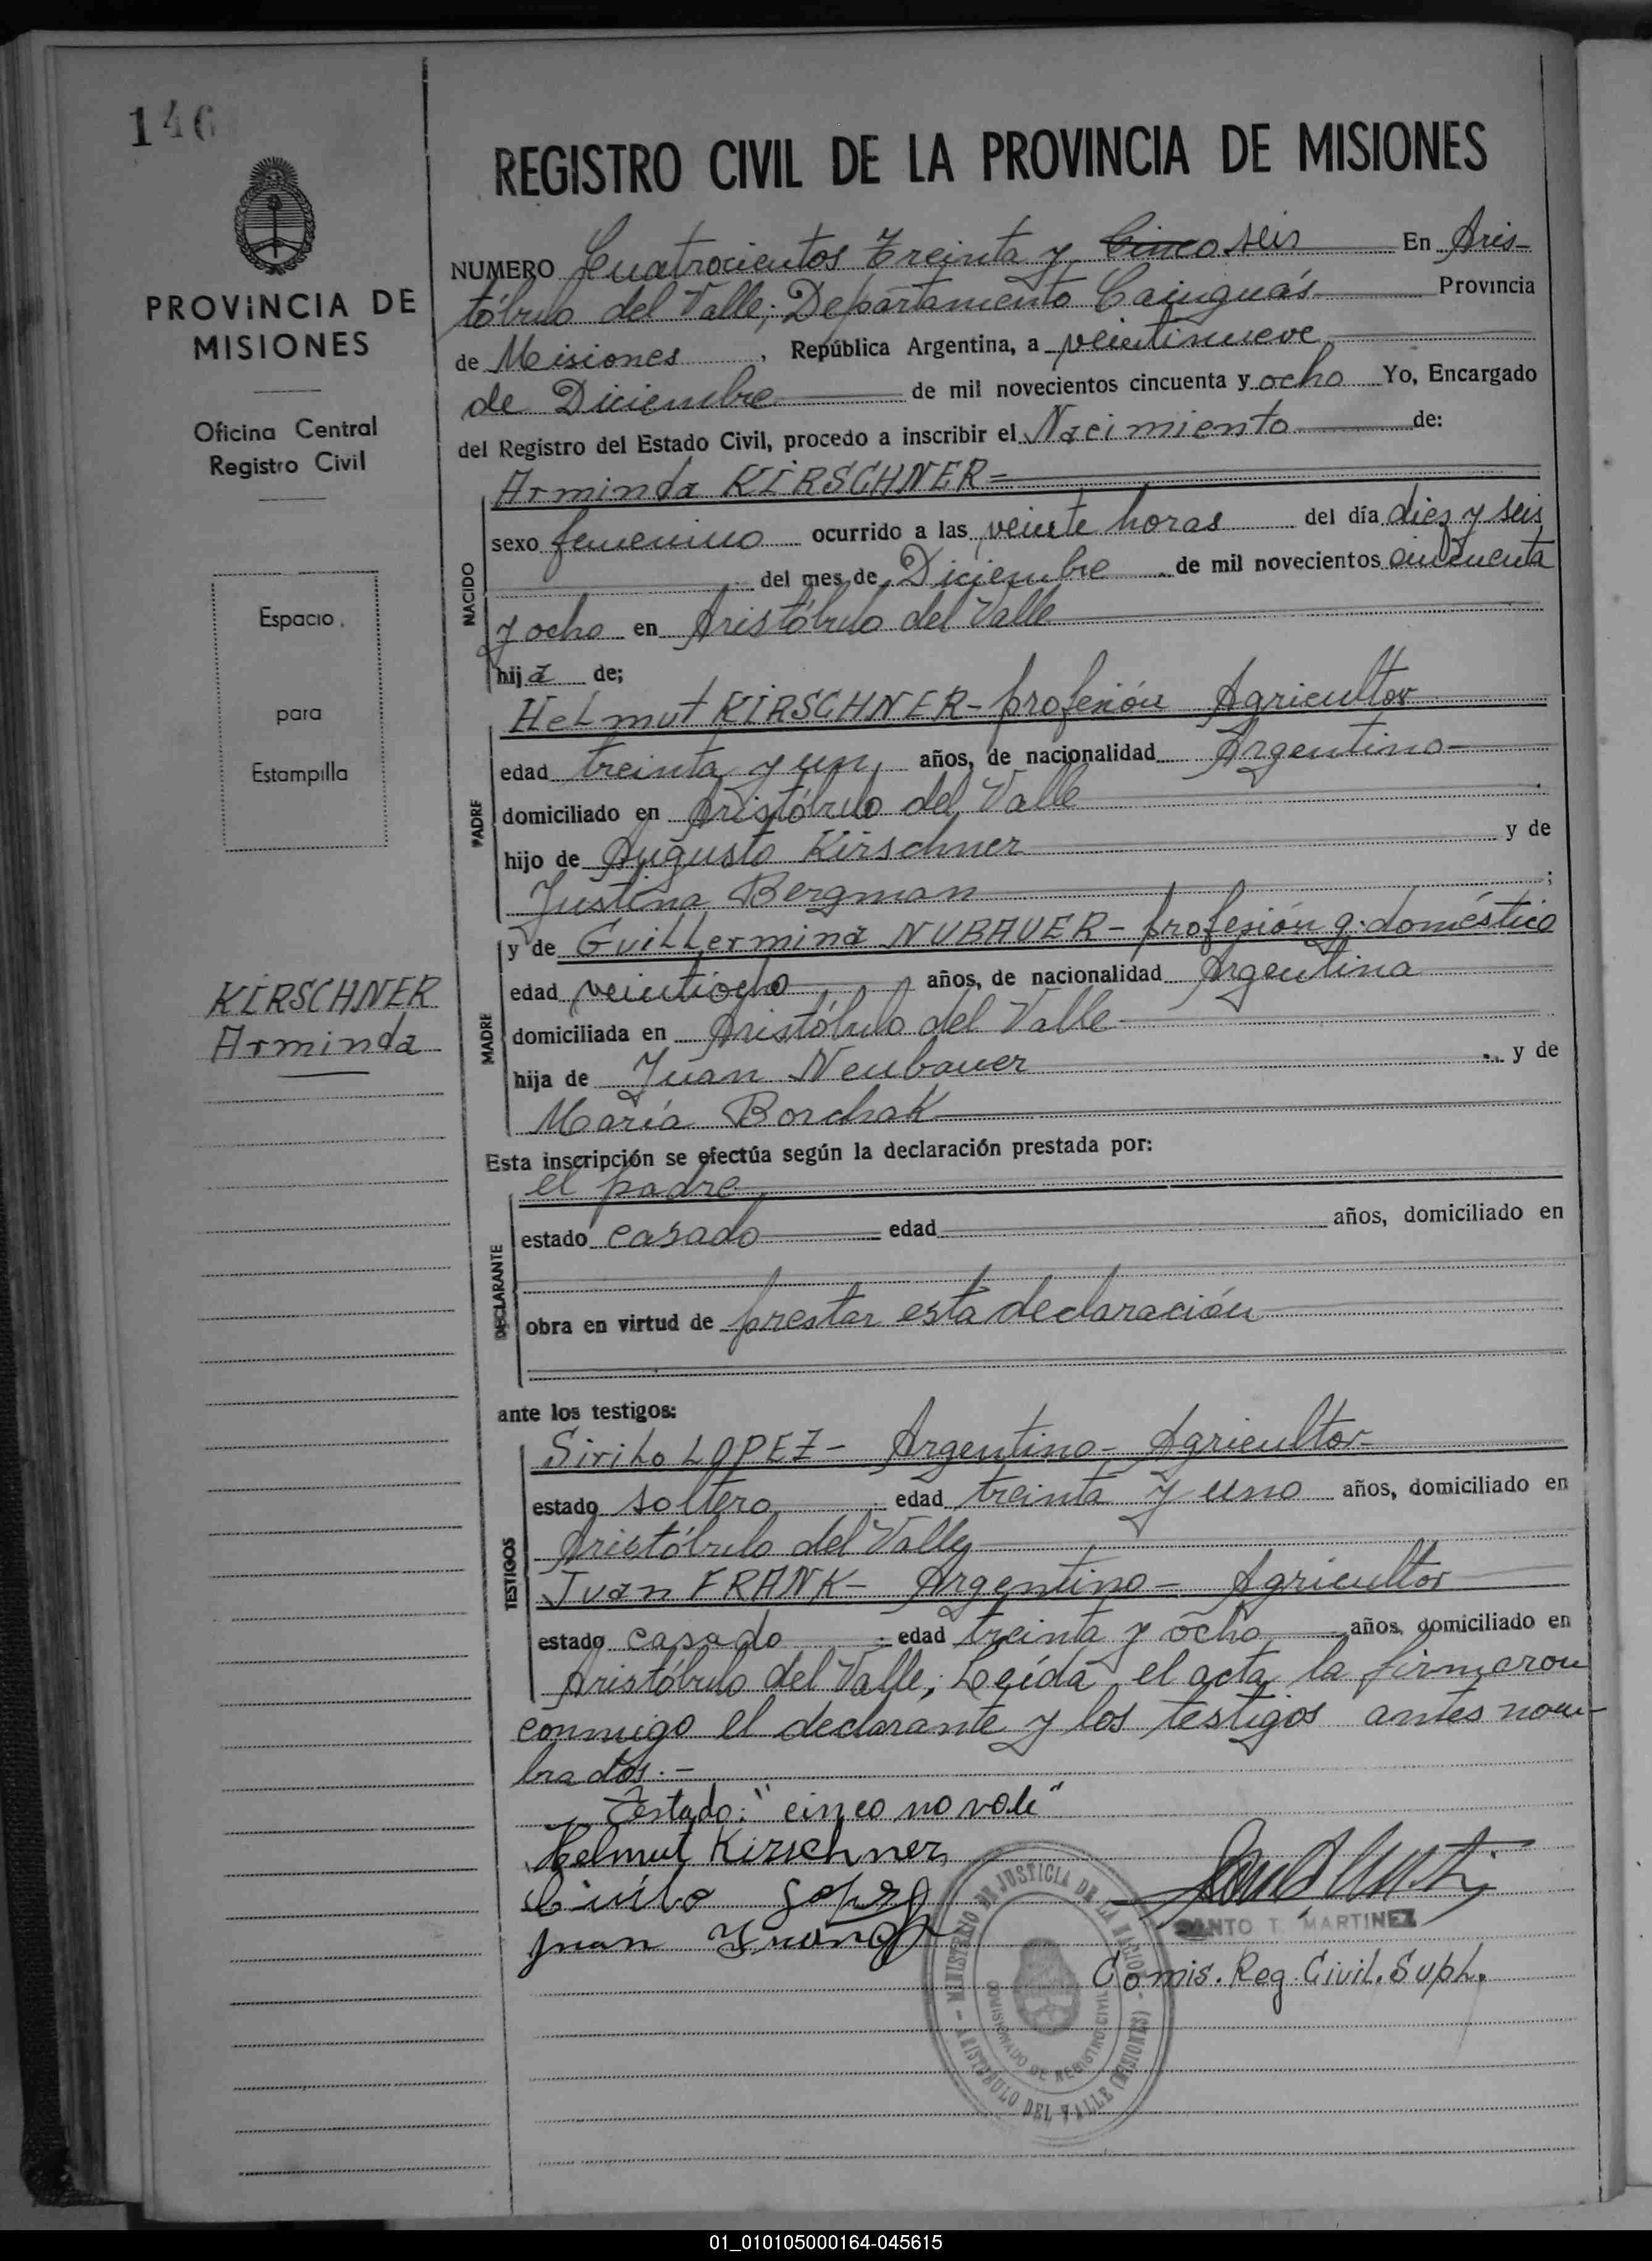 146
PROVINCIA DE
MISIONES
Oficina Central
Registro Civil
Espacio
para
Estampilla
KIRSCHNER
Arminda
REGISTRO CIVIL DE LA PROVINCIA DE MISIONES
NUMERO Cuatrocientos Treinta y Cinco seis En Aris-
tóbulo del Valle; Departamento Cainguás Provincia
de Misiones, República Argentina, a veintinueve
de Diciembre de mil novecientos cincuenta y ocho Yo, Encargado
del Registro del Estado Civil, procedo a inscribir el Nacimiento de:
NACIDO
Arminda KIRSCHNER=
sexo femenino ocurrido a las veinte horas del día diez y seis
del mes de Diciembre de mil novecientos cincuenta
y ocho en Aristóbulo del Valle
hija de;
PADRE
Helmut KIRSCHNER- profesión Agricultor
edad treinta y un años, de nacionalidad Argentino-
domiciliado en Aristóbulo del Valle
hijo de Augusto Kirschner y de
Justina Bergman ;
MADRE
y de Guillermina NUBAUER- profesión q. doméstico
edad veintiocho años, de nacionalidad Argentina
domiciliada en Aristóbulo del Valle-
hija de Juan Neubauer y de
María Borchak
Esta inscripción se efectúa según la declaración prestada por:
DECLARANTE
el padre
estado casado edad años, domiciliado en
obra en virtud de prestar esta declaración
ante los testigos:
TESTIGOS
Sirilo LOPEZ- Argentino- Agricultor-
estado soltero ; edad treinta y uno años, domiciliado en
Aristóbulo del Valle
Juan FRANK- Argentino- Agricultor
estado casado ; edad treinta y ocho años, domiciliado en
Aristóbulo del Valle; Leída el acta la firmaron
conmigo el declarante y los testigos antes nom-
brados.-
Testado: "cinco no vale"
Helmut Kirschner
Juan
SANTO T. MARTINEZ
Comis. Reg. Civil. Supl.
MINISTERIO DE JUSTICIA DE LA NACION
COMISIONADO DE REGISTRO CIVIL
ARISTOBULO DEL VALLE (MISIONES)
01_010105000164-045615